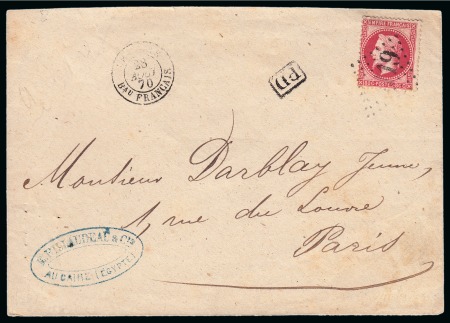 28
AOUT
70
BAU FRANÇAIS
PD
EMPIRE FRANÇAIS
Monsieur Darblay Jeune,
1, rue du Louvre
Paris
& CIE
AU CAIRE (EGYPTE)